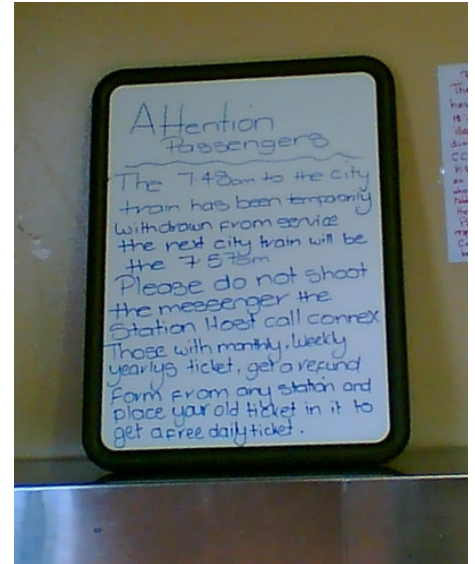 Attention
Passengers
The 7.48am to the city
train has been temporarily
withdrawn from service
the next city train will be
the 7.57am
Please do not shoot
the messenger the
Station Host call connex
Those with monthly, Weekly
yearlys ticket, get a refund
form from any station and
place your old ticket in it to
get a free daily ticket.